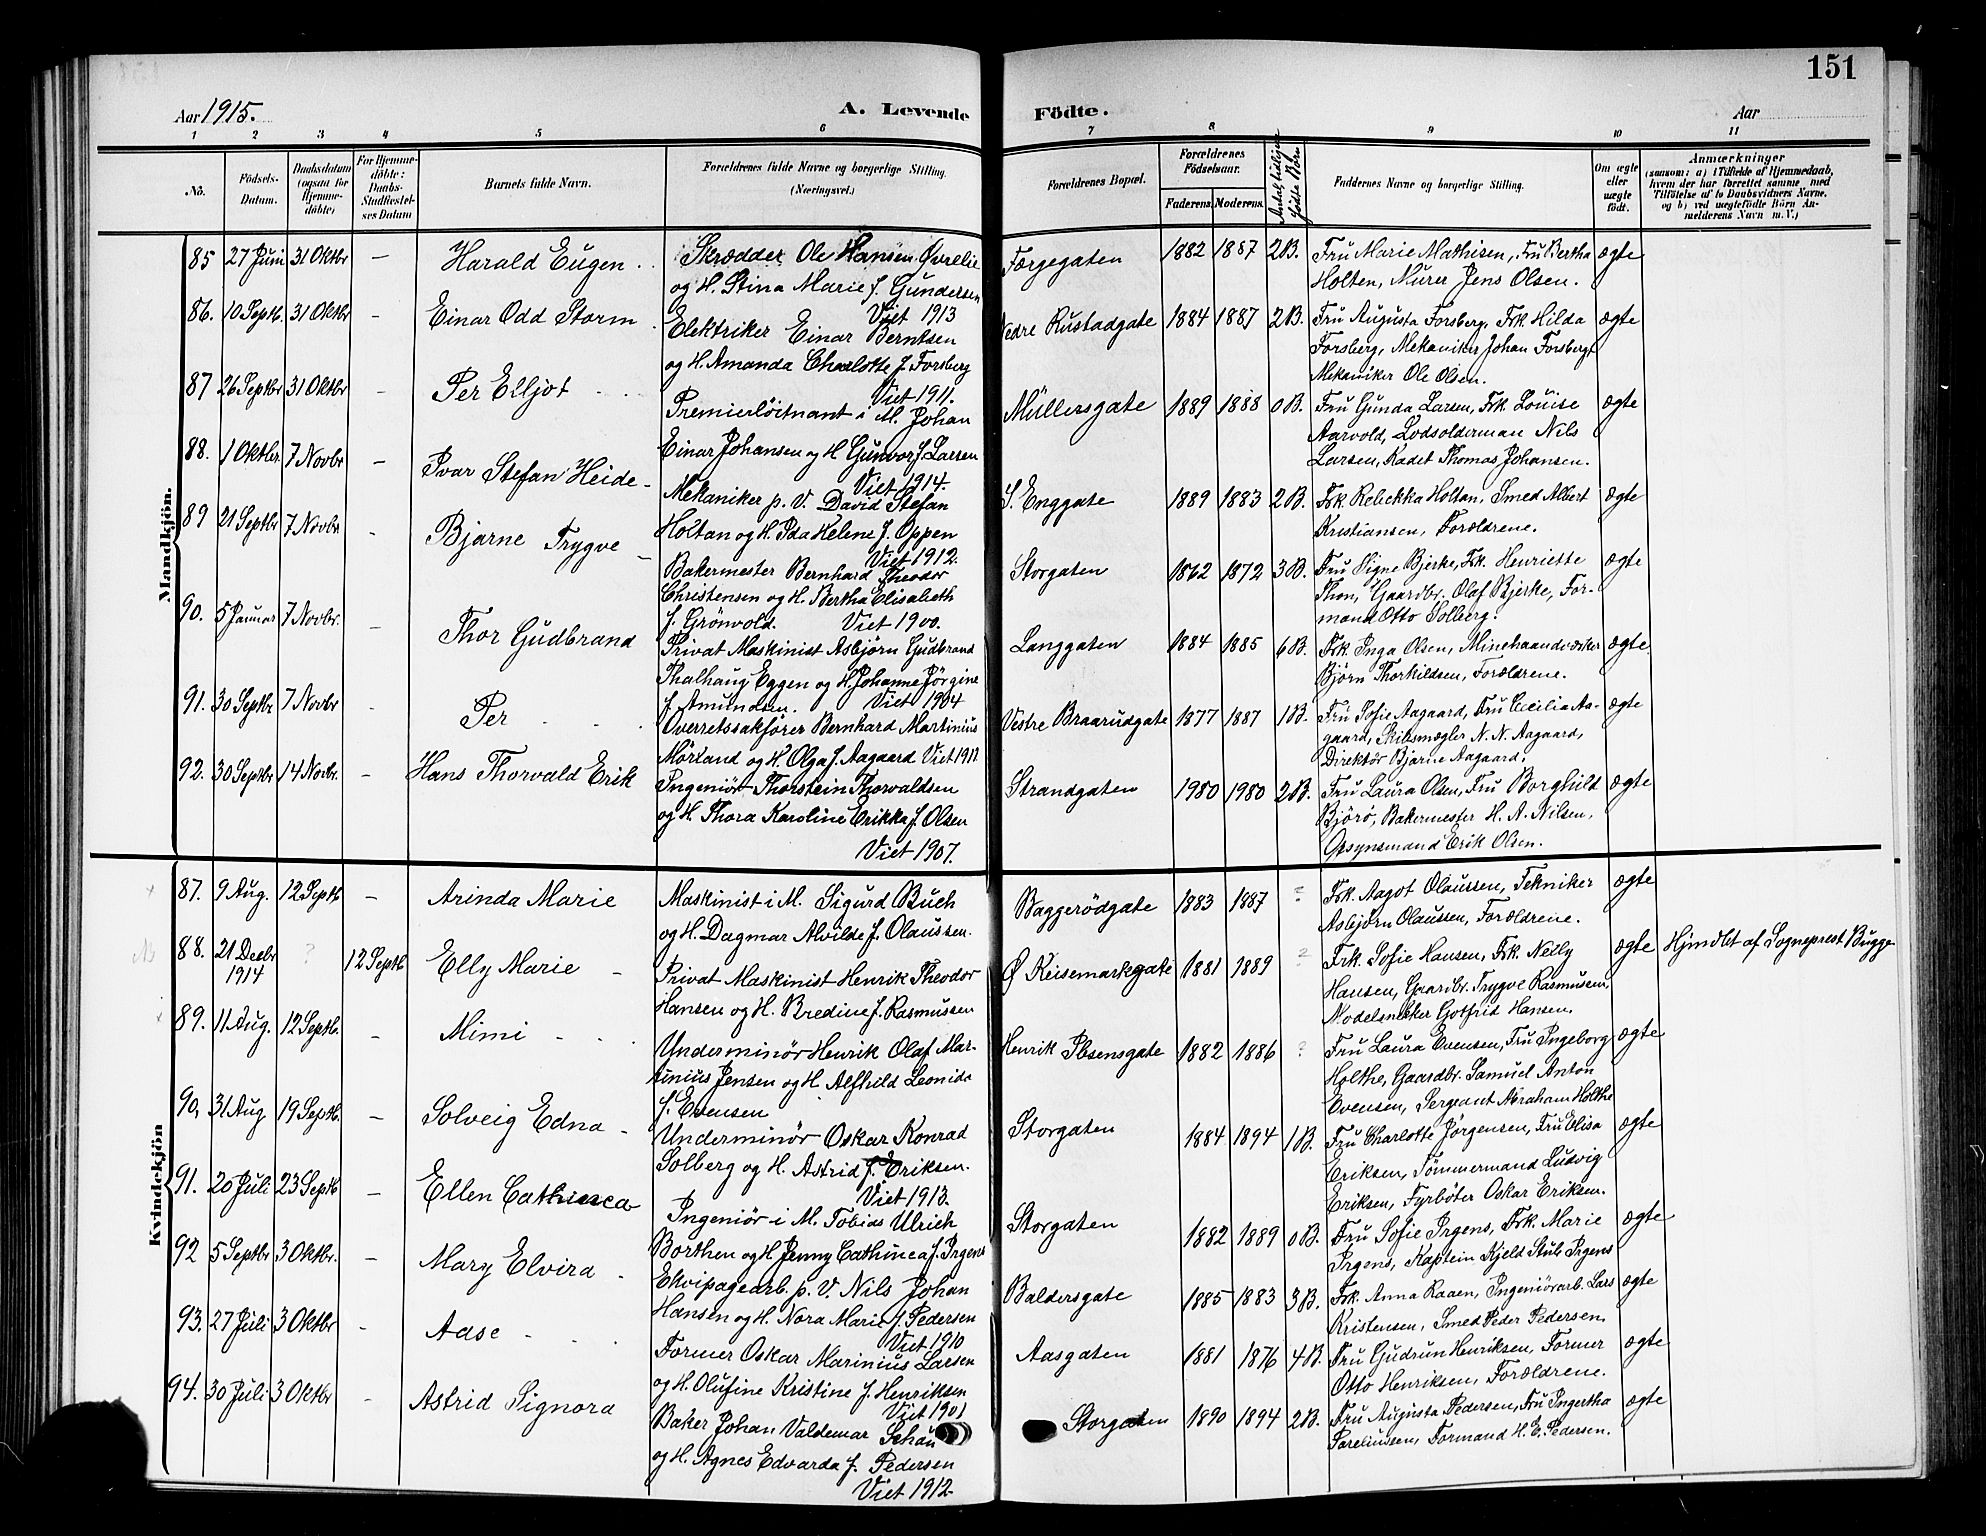 151
Aar 1915.
A. Levende Födte.
Aar
1 2 3 4 5 6 7 8 9 10 11
No.
Födsels-Datum.
Daabsdatum (ogsaa for Hjemme-döbte)
For Hjemme-döbte: Daabs-Stadfæstel-ses Datum
Barnets fulde Navn.
Forældrenes fulde Navne og borgerlige Stilling. (Næringsvei.)
Forældrenes Bopæl.
Forældrenes Födselsaar.
Faderens. Moderens.
Antal tidligere födte Börn
Faddernes Navne og borgerlige Stilling.
Om ægte eller uægte födt.
Anmærkninger
(saasom: a) i Tilfælde af Hjemmedaab, hvem der har forrettet samme med Tilföielse af to Daabsvidners Navne, og b) ved uægtefödte Börn An-melderens Navn m. V.)
Mandkjön.
85 27 Juni 31 Oktbr – Harald Eugen
Skrædder Ole Hansen Øvrelie
og H. Stina Marie f. Gundersen
Viet 1913
Færgegaten 1882 1887 2 B.
Fru Marie Mathisen, Fru Bertha
Holten, Murer Jens Olsen.
ægte
86. 10 Septb. 31 Oktbr – Einar Odd Storm
Elektriker Einar Berntsen
og H. Amanda Charlotte f. Forsberg
Viet 1911.
Nedre Rustadgate 1884 1887 2 B.
Fru Augusta Forsberg, Frk. Hilda
Forsberg, Mekaniker Johan Forsberg,
Mekaniker Ole Olsen.
ægte
87 26 Septbr 31 Oktbr – Per Elljot
Premierløitnant i M. Johan
Einar Johansen og H Gunvor f. Larsen
Viet 1914.
Müllersgate 1889 1888 0 B.
Fru Gunda Larsen, Frk. Louise
Aarvold, Lodsolderman Nils
Larsen, Kadet Thomas Johansen.
ægte
88. 1 Oktbr. 7 Novbr – Ivar Stefan Heide
Mekaniker p. V. David Stefan
Holtan og H. Ida Helene f. Oppen
Viet 1912.
S. Enggate 1889 1883 2 B.
Frk. Rebekka Holtan, Smed Albert
Kristiansen, Forældrene.
ægte
89 21 Septbr 7 Novbr – Bjarne Trygve
Bakermester Bernhard Theodor
Christensen og H. Bertha Elisabeth
f. Grönvold. Viet 1900.
Storgaten 1862 1872 3 B.
Fru Signe Bjerke, Frk. Henriette
Thon, Gaardbr. Olaf Bjerke, For-
mand Otto Solberg.
ægte
90. 5 Januar 7 Novbr. – Thor Gudbrand
Privat Maskinist Asbjørn Gudbrand
Thalhaug Eggen og H. Johanne Jörgine
f. Amundsen. Viet 1904
Langgaten 1884 1885 6 B.
Frk. Inga Olsen, Minehaandværker
Björn Thorkildsen, Forældrene.
ægte
91. 30 Septbr 7 Novbr – Per
Overretssakfører Bernhard Martinius
Mörland og H. Olga f. Aagaard Viet 1911.
Vestre Braarudgate 1877 1887 1 B.
Fru Sofie Aagaard, Fru Cecilia Aa-
gaard, Skibsmægler N. N. Aagaard,
Direktør Bjarne Aagaard.
ægte
92. 30 Septbr 14 Novbr. – Hans Thorvald Erik
Ingeniör Thorstein Thorvaldsen
og H. Thora Karoline Erikka f. Olsen
Viet 1907.
Strandgaten 1980 1980 2 B.
Fru Laura Olsen, Fru Borghild
Björö, Bakermester H. A. Nilsen,
Opsynsmand Erik Olsen.
ægte
Kvindekjön
87. 9 Aug. 12 Septb – Arinda Marie
Maskinist i M. Sigurd Buch
og H. Dagmar Alvilde f. Olaussen.
Baggerödgate 1883 1887 ?
Frk. Aagot Olaussen, Tekniker
Asbjørn Olaussen, Forældrene.
ægte
88. 21 Decbr 1914 ? 12 Septb Elly Marie
Privat Maskinist Henrik Theodor
Hansen og H. Bredine f. Rasmussen
Ø Keisemarkgate 1881 1889 ?
Frk. Sofie Hansen, Frk. Nelly
Hansen, Gaardbr. Trygve Rasmusen,
Modelsnekker Gotfrid Hansen.
ægte
Hjmdbt af Sogneprest Bugge
89. 11 Aug. 12 Septb. – Mimi
Underminör Henrik Olaf Mar-
tinius Jensen og H. Alfhild Leonida
f. Evensen
Henrik Ibsensgate 1882 1886 ?
Fru Laura Evensen, Fru Ingeborg
Holthe, Gaardbr. Samuel Anton
Evensen, Sergeant Abraham Holthe
ægte
90. 31 Aug 19 Septb. – Solveig Edna
Underminör Oskar Konrad
Solberg og H. Astrid f. Eriksen.
Viet 1913.
Storgaten 1884 1894 1 B.
Fru Charlotte Jørgensen, Fru Elisa
Eriksen, Tømmermand Ludvig
Eriksen, Fyrböter Oskar Eriksen.
ægte
91. 20 Juli 23 Septb – Ellen Cathinca
Ingeniör i M. Tobias Ulrich
Borthen og H Jenny Cathinca f. Irgens
Storgaten 1882 1889 0 B.
Fru Sofie Irgens, Frk. Marie
Irgens, Kaptein Kjeld Stub Irgens
ægte
92 5 Septbr 3 Oktbr. – Mary Elvira
Ekvipagearb. p. V. Nils Johan
Hansen og H. Nora Marie f. Pedersen
Viet 1910
Baldersgate 1885 1883 3 B.
Frk. Anna Raaen, Ingeniörarb. Lars
Kristensen, Smed Peder Pedersen.
ægte
93. 27 Juli 3 Oktbr – Aase
Former Oskar Marinius Larsen
og H. Olufine Kristine f. Henriksen
Viet 1901
Aasgaten 1881 1876 4 B.
Fru Gudrun Henriksen, Former
Otto Henriksen, Forældrene.
ægte
94. 30 Juli 3 Oktbr – Astrid Signora
Baker Johan Valdemar Schau
og H. Agnes Edvarda f. Pedersen
Viet 1912
Storgaten 1890 1894 2 B.
Fru Augusta Pedersen, Fru Ingertha
Sareliussen, Formand H. E. Pedersen.
ægte